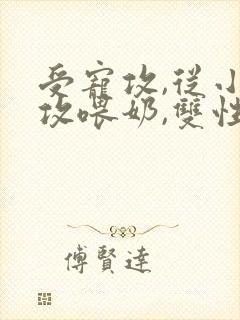 受寵攻,從小
攻喂奶,雙性
傅賢達